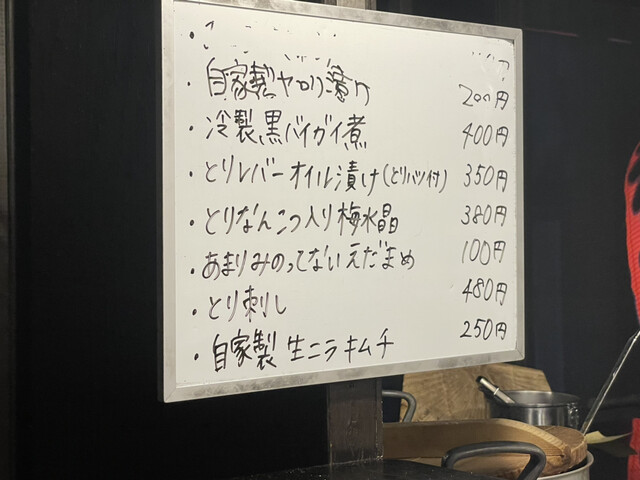 自家製 漬け 200円
冷製黒バイガイ煮 400円
とりレバーオイル漬け(とりハツ付) 350円
とりなんこつ入り梅水晶 380円
あまりみのってないえだまめ 100円
とり刺し 480円
自家製 生ニラキムチ 250円